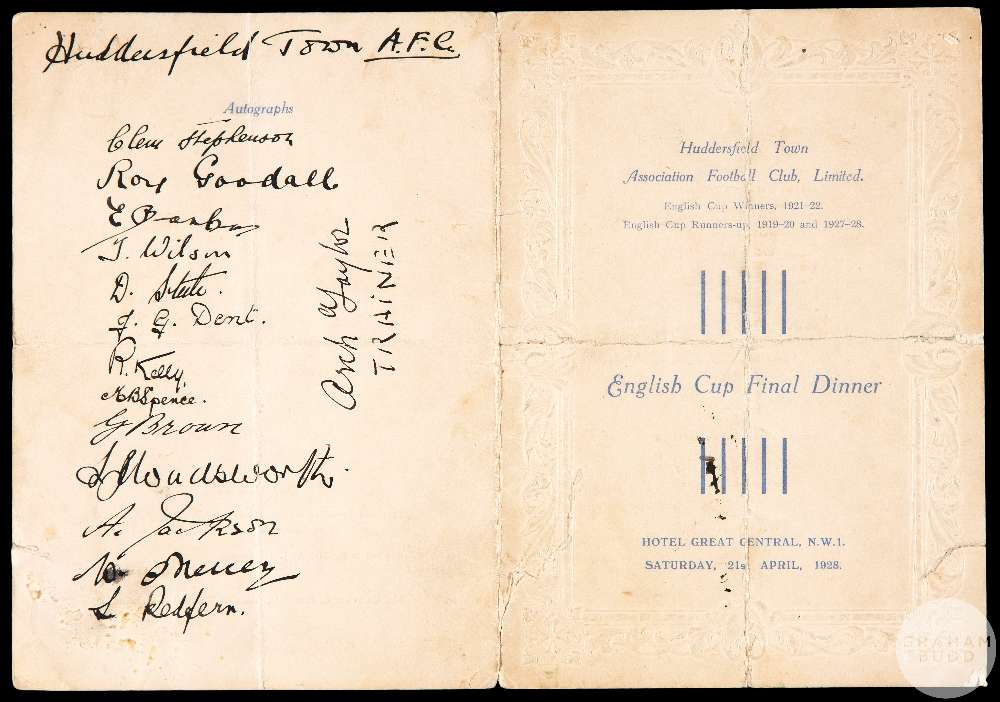 Huddersfield Town A.F.C.
Autographs
Clem Stephenson
Roy Goodall
E Barkas
T. Wilson
D. Steele.
J. G. Dent.
R. Kelly.
M B Spence.
G Brown
Wadsworth.
A. Jackson
W. Mercer
L Redfern.
Arch Taylor
TRAINER
Huddersfield Town
Association Football Club, Limited.
English Cup Winners, 1921-22.
English Cup Runners-up, 1919-20 and 1927-28.
English Cup Final Dinner
HOTEL GREAT CENTRAL, N.W.1.
SATURDAY, 21s APRIL, 1928.
GRAHAM
BUDD